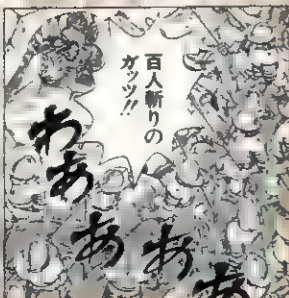 百人斬りの
ガッツ!!
わあああぁ